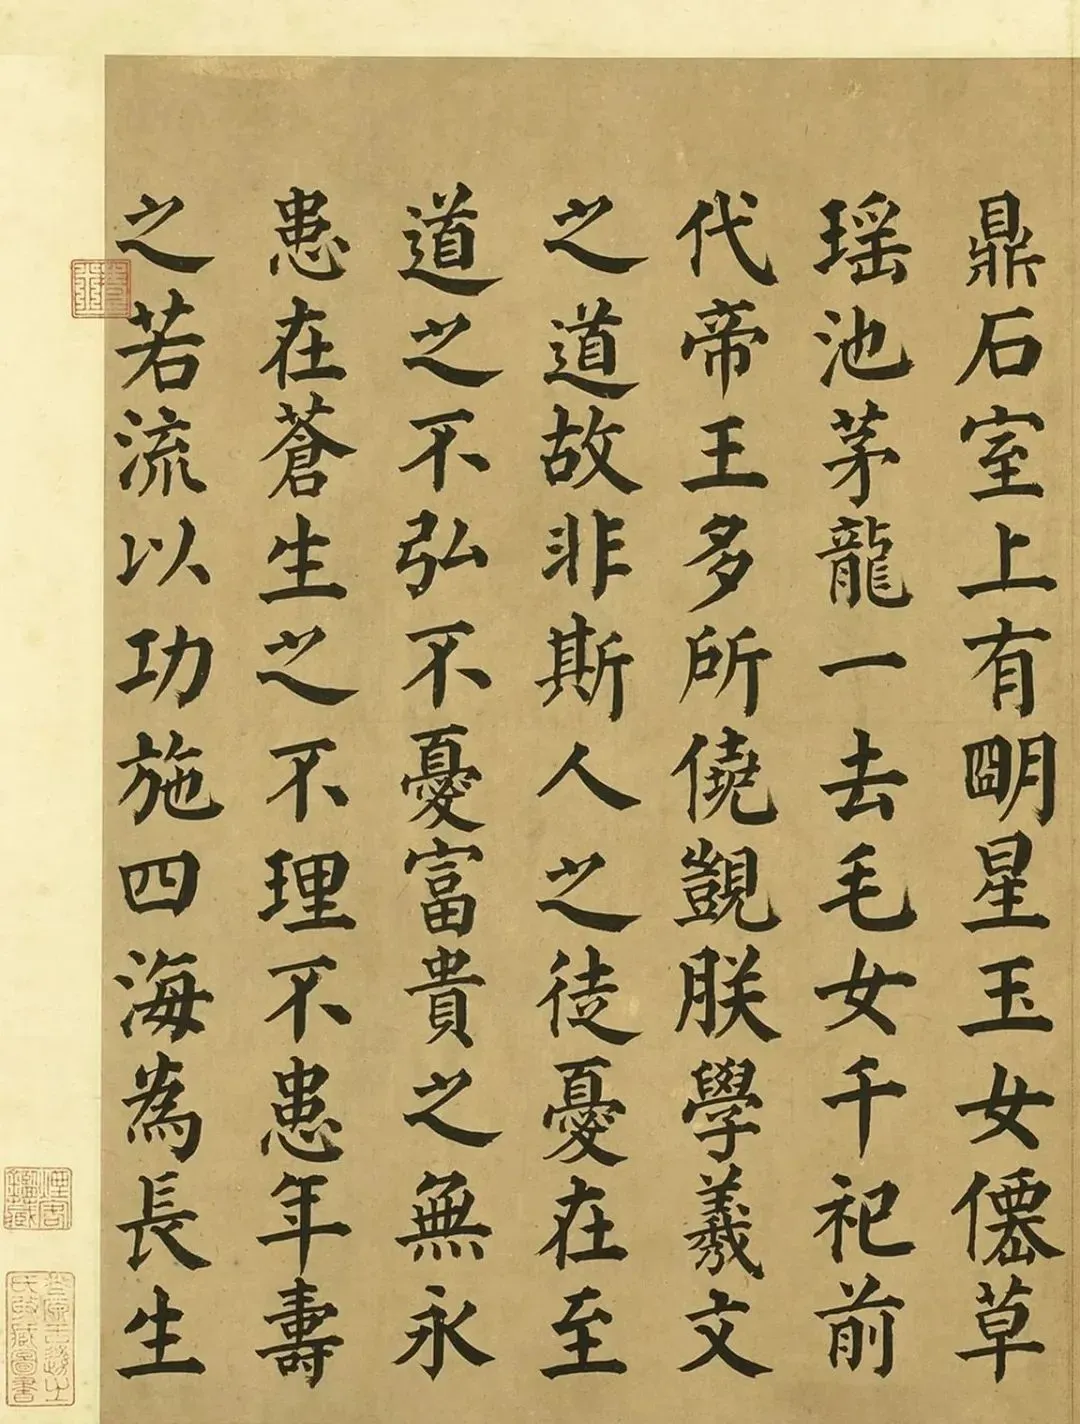 鼎石室上有朙星玉女僊草
瑶池茅龍一去毛女千祀前
代帝王多所僥覬朕學羲文
之道故非斯人之徒憂在至
道之不弘不憂富貴之無永
患在蒼生之不理不患年壽
之若流以功施四海為長生